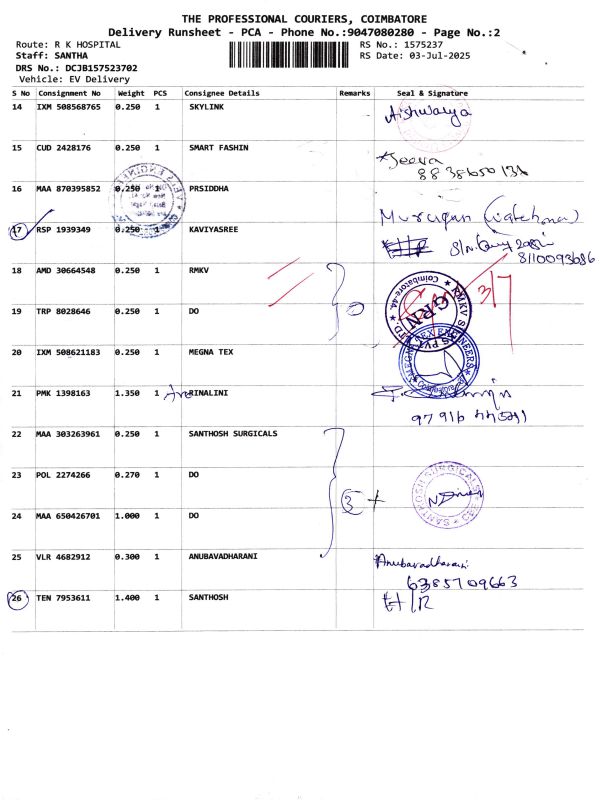 THE PROFESSIONAL COURIERS, COIMBATORE
Delivery Runsheet - PCA - Phone No.:9047080280 - Page No.:2
Route: R K HOSPITAL RS No.: 1575237
Staff: SANTHA RS Date: 03-Jul-2025
DRS No.: DCJB157523702
Vehicle: EV Delivery
S No Consignment No Weight PCS Consignee Details Remarks Seal & Signature
14 IXM 508568765 0.250 1 SKYLINK Aishwarya
15 CUD 2428176 0.250 1 SMART FASHIN Jeeva
16 MAA 870395852 0.250 1 PRSIDDHA
17 RSP 1939349 0.250 1 KAVIYASREE Murugan
8110093686
18 AMD 30664548 0.250 1 RMKV 3/7
19 TRP 8028646 0.250 1 DO
20 IXM 508621183 0.250 1 MEGNA TEX
21 PMK 1398163 1.350 1 RINALINI
22 MAA 303263961 0.250 1 SANTHOSH SURGICALS
23 POL 2274266 0.270 1 DO
SANTHOSH SURGICALS
24 MAA 650426701 1.000 1 DO
25 VLR 4682912 0.300 1 ANUBAVADHARANI Anubavadharani
6385709663
26 TEN 7953611 1.400 1 SANTHOSH H/R